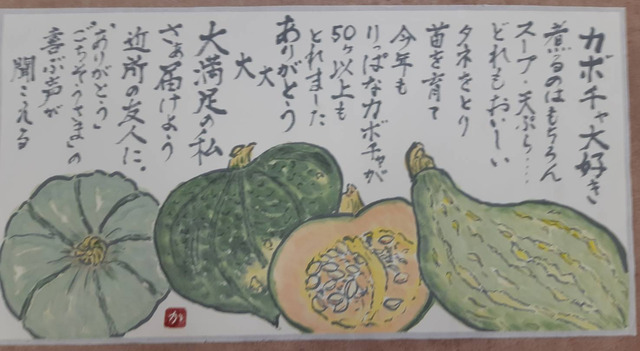 カボチャ大好き
煮るのはもちろん
スープ・天ぷら……
どれもおいしい
タネをとり
苗を育て
今年も
りっぱなカボチャが
50ヶ以上も
とれました
ありがとう
大
大
大満足の私
さぁ届けよう
近所の友人に。
"ありがとう"
"ごちそうさま"の
喜ぶ声が
聞こえる
か